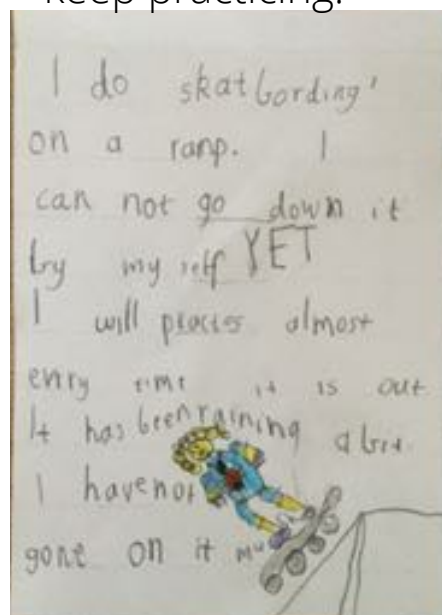 keep practicing!
I do skatbording
on a ramp. I
can not go down it
by my self YET
I will practes almost
evry time it is out
It has been raining a bit.
I have not
gone on it much